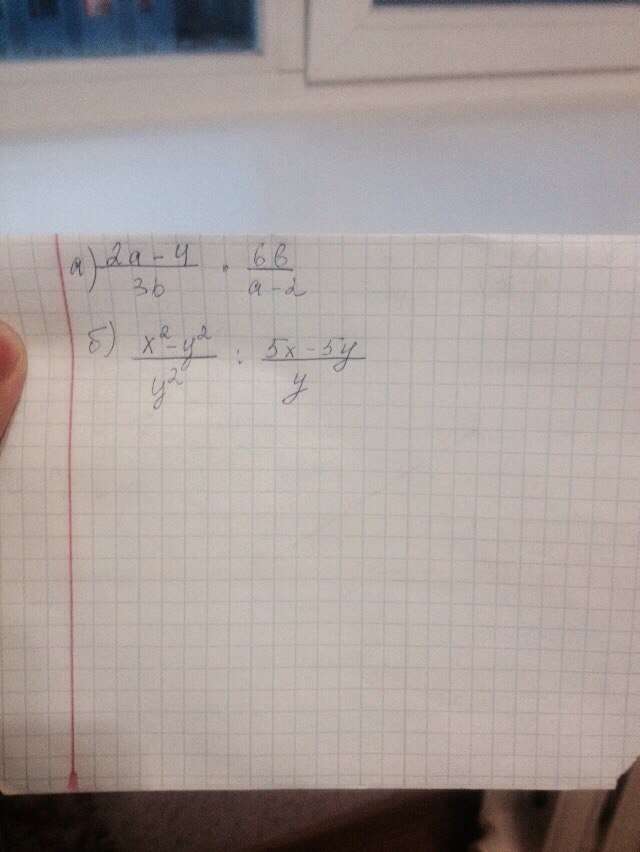 а) (2a - 4)/(3b) · (6b)/(a - 2)
б) (x² - y²)/(y²) : (5x - 5y)/(y)